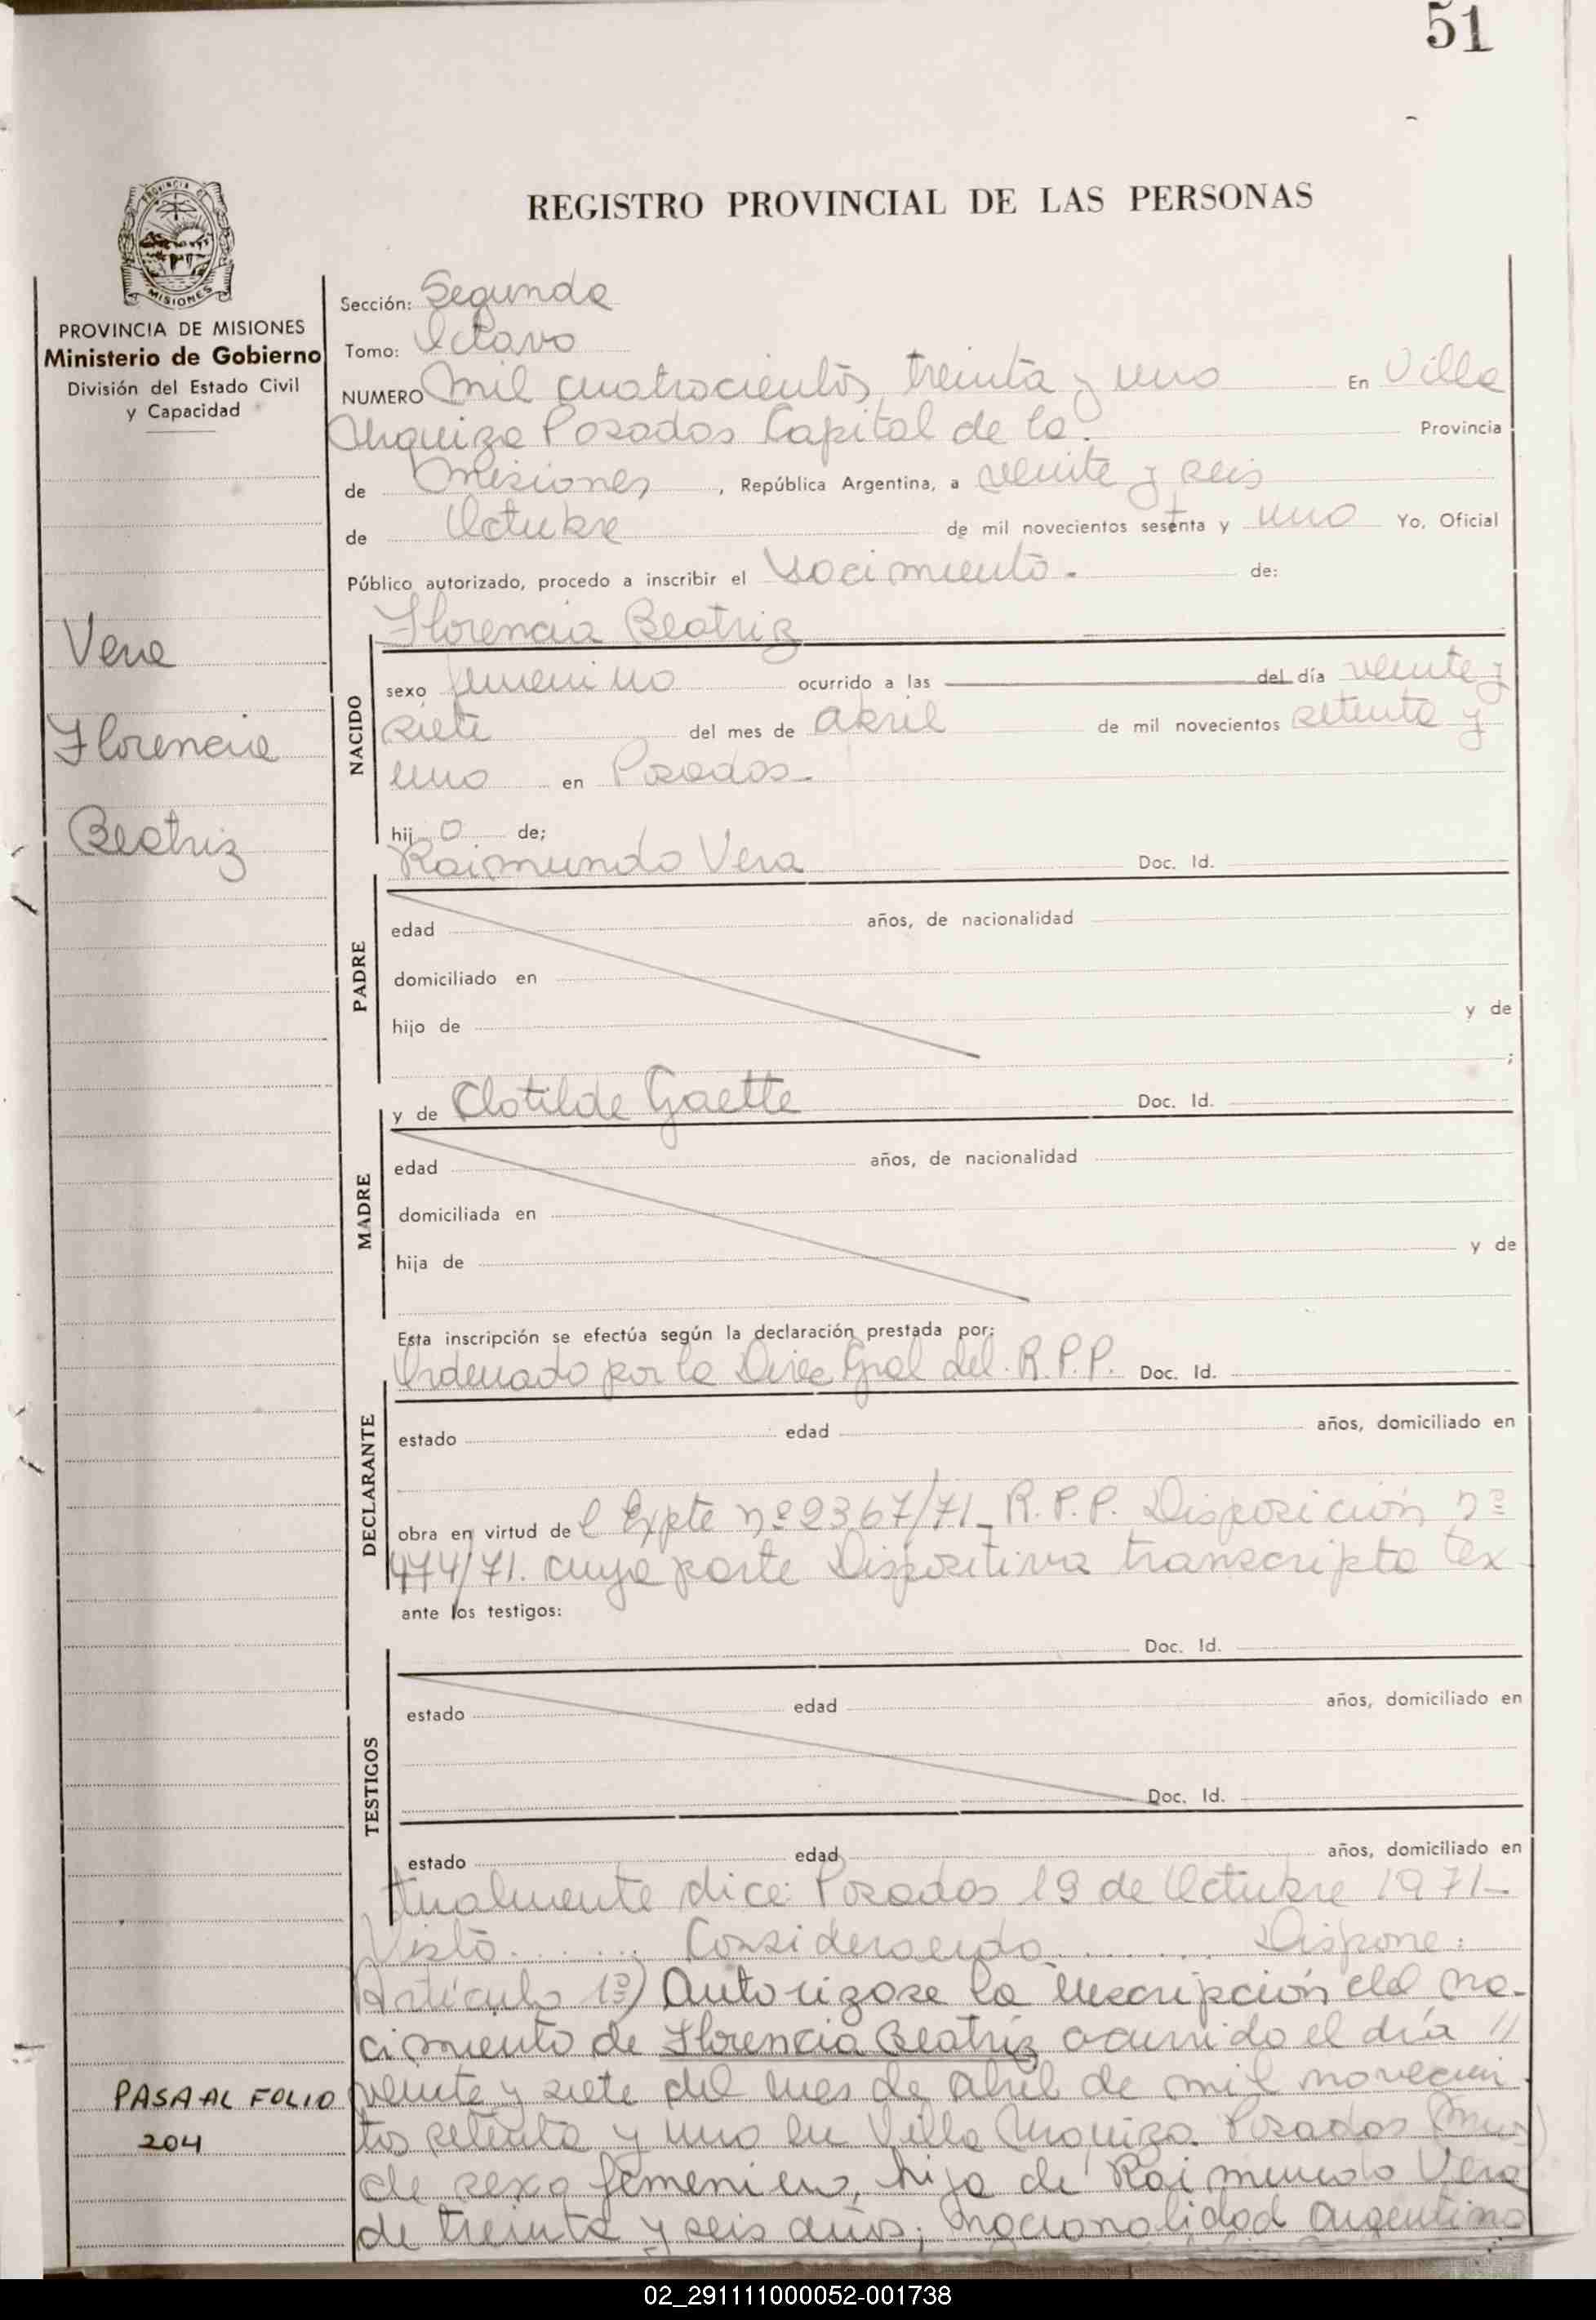 51
REGISTRO PROVINCIAL DE LAS PERSONAS
PROVINCIA DE MISIONES
PROVINCIA DE MISIONES
Ministerio de Gobierno
División del Estado Civil
y Capacidad
Vera
Florencia
Beatriz
PASA AL FOLIO
204
Sección: Segunda
Tomo: Octavo
NUMERO Mil cuatrocientos treinta y uno En Villa
Urquiza Posadas Capital de la. Provincia
de Misiones, República Argentina, a veinte y seis
de Octubre de mil novecientos sesenta y uno Yo, Oficial
Público autorizado, procedo a inscribir el Nacimiento. de:
Florencia Beatriz
NACIDO
sexo femenino ocurrido a las del día veinte y
siete del mes de abril de mil novecientos setenta y
uno en Posadas.
hij o de;
Raimundo Vera Doc. Id.
PADRE
edad años, de nacionalidad
domiciliado en
hijo de y de
;
y de Clotilde Gaette Doc. Id.
MADRE
edad años, de nacionalidad
domiciliada en
hija de y de
Esta inscripción se efectúa según la declaración prestada por:
Ordenado por la Direc Gral del. R.P.P. Doc. Id.
DECLARANTE
estado edad años, domiciliado en
obra en virtud de l Expte nº 2367/71_ R.P.P. Disposición nº
474/71. cuya parte Dispositiva transcripta tex
ante los testigos:
Doc. Id.
TESTIGOS
estado edad años, domiciliado en
Doc. Id.
estado edad años, domiciliado en
tualmente dice: Posadas 19 de Octubre 1971-
Visto....... Considerando....... Dispone:
Artículo 1º) Autorizase la inscripción del na-
cimiento de Florencia Beatriz ocurrido el día //
veinte y siete del mes de abril de mil novecien
tos setenta y uno en Villa Urquiza Posadas (Mnes)
de sexo femenino, hija de Raimundo Vera
de treinta y seis años; nacionalidad argentina
02_291111000052-001738